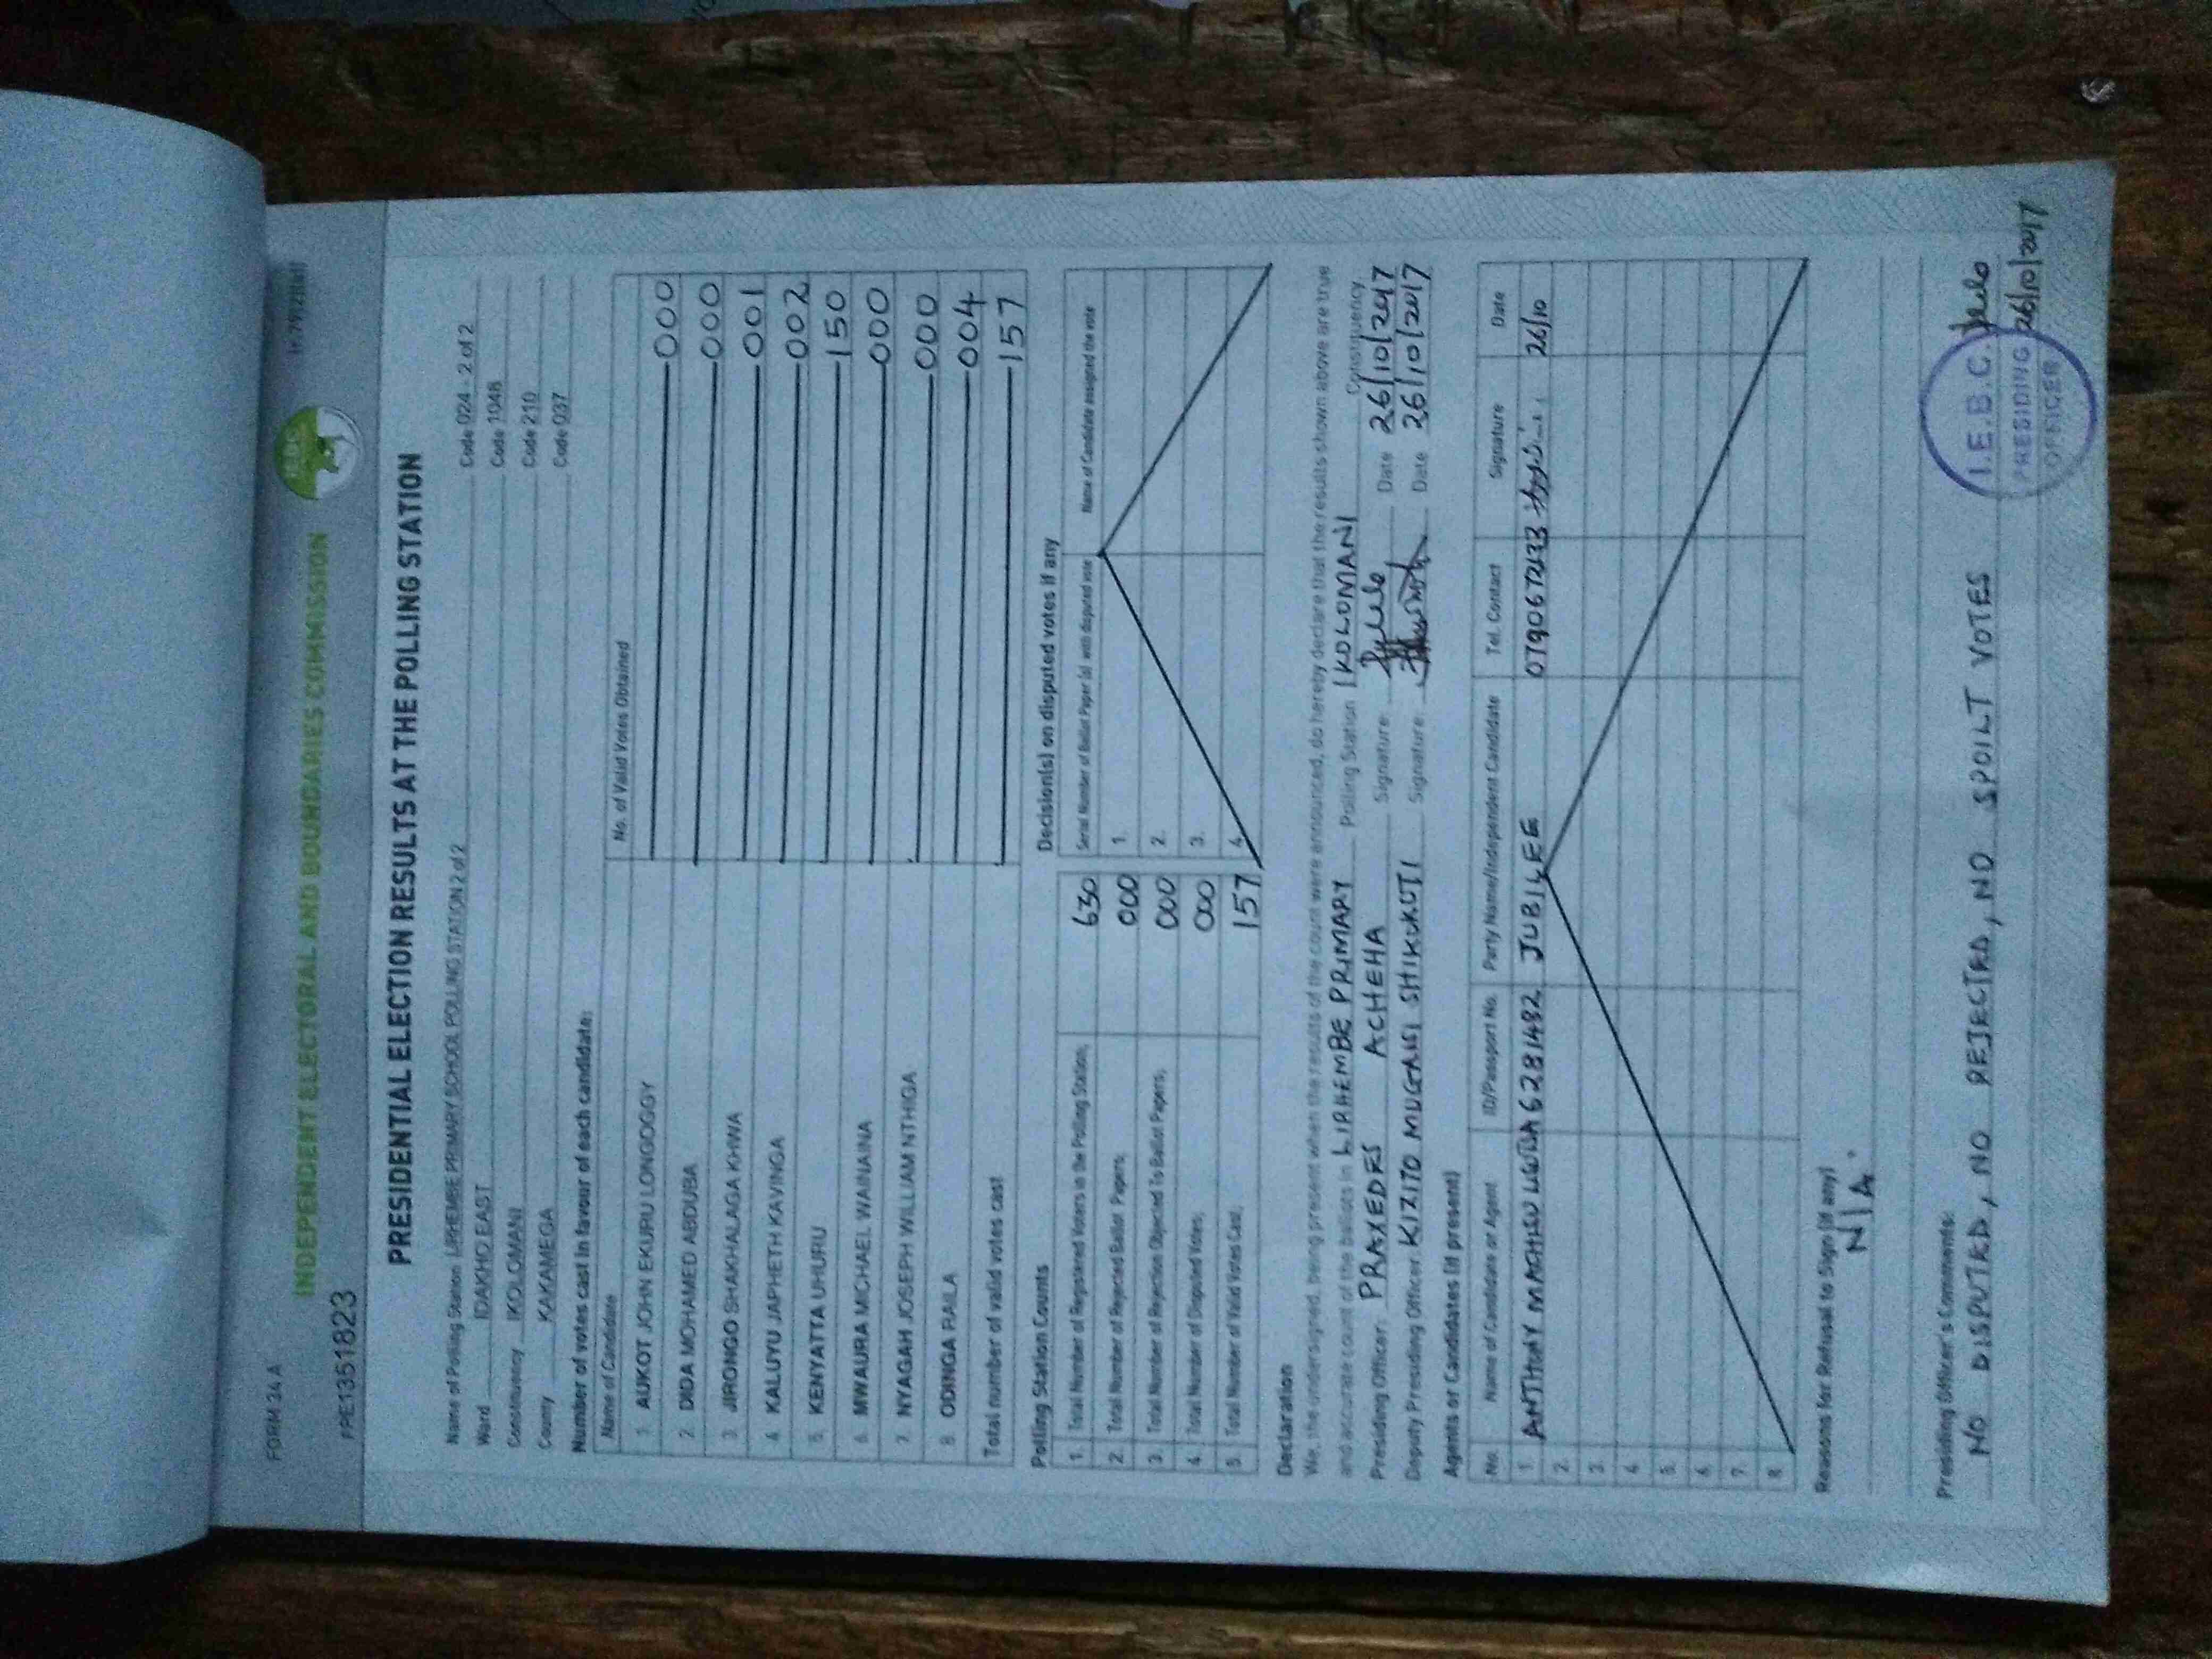 FORM 34 A
INDEPENDENT ELECTORAL AND BOUNDARIES COMMISSION
PPE1351823
PRESIDENTIAL ELECTION RESULTS AT THE POLLING STATION
Name of Polling Station LIREMBE PRIMARY SCHOOL POLLING STATION 2 of 2 Code 024 - 2 of 2
Ward IDAKHO EAST Code 1048
Constituency IKOLOMANI Code 210
County KAKAMEGA Code 037
Number of votes cast in favour of each candidate:
Name of Candidate No. of Valid Votes Obtained
1. AUKOT JOHN EKURU LONGOGGY 000
2. DIDA MOHAMED ABDUBA 000
3. JIRONGO SHAKHALAGA KHWA 001
4. KALUYU JAPHETH KAVINGA 002
5. KENYATTA UHURU 150
6. MWAURA MICHAEL WAINAINA 000
7. NYAGAH JOSEPH WILLIAM NTHIGA 000
8. ODINGA RAILA 004
Total number of valid votes cast 157
Polling Station Counts
1. Total Number of Registered Voters in the Polling Station; 630
2. Total Number of Rejected Ballot Papers; 000
3. Total Number of Rejection Objected To Ballot Papers; 000
4. Total Number of Disputed Votes; 000
5. Total Number of Valid Votes Cast; 157
Decision(s) on disputed votes if any
Serial Number of Ballot Paper (s) with disputed vote Name of Candidate assigned the vote
1.
2.
3.
4.
Declaration
We, the undersigned, being present when the results of the count were announced, do hereby declare that the results shown above are true
and accurate count of the ballots in LIRHEMBE PRIMARY Polling Station IKOLOMANI Constituency.
Presiding Officer: PRAXEDES ACHEHA Signature: Date 26/10/2017
Deputy Presiding Officer KIZITO MUGALSI SHIKUKUTI Signature: Date 26/10/2017
Agents or Candidates (if present)
No. Name of Candidate or Agent ID/Passport No. Party Name/Independent Candidate Tel. Contact Signature Date
1. ANTHONY 6281482 JUBILEE 26/10
2.
3.
4.
5.
6.
7.
8.
Reasons for Refusal to Sign (if any)
N/A
Presiding Officer's Comments:
NO DISPUTED, NO REJECTED, NO SPOILT VOTES
I.E.B.C.
PRESIDING
OFFICER
26/10/2017